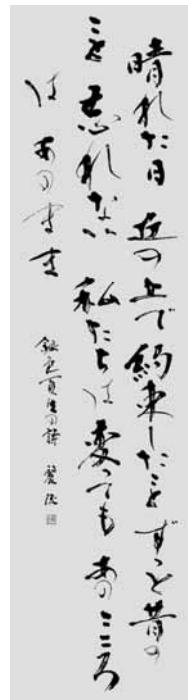 晴れた日 丘の上で約束したこと ずっと昔の
ことを忘れない 私たちは変っても あのこころ
はあのまま